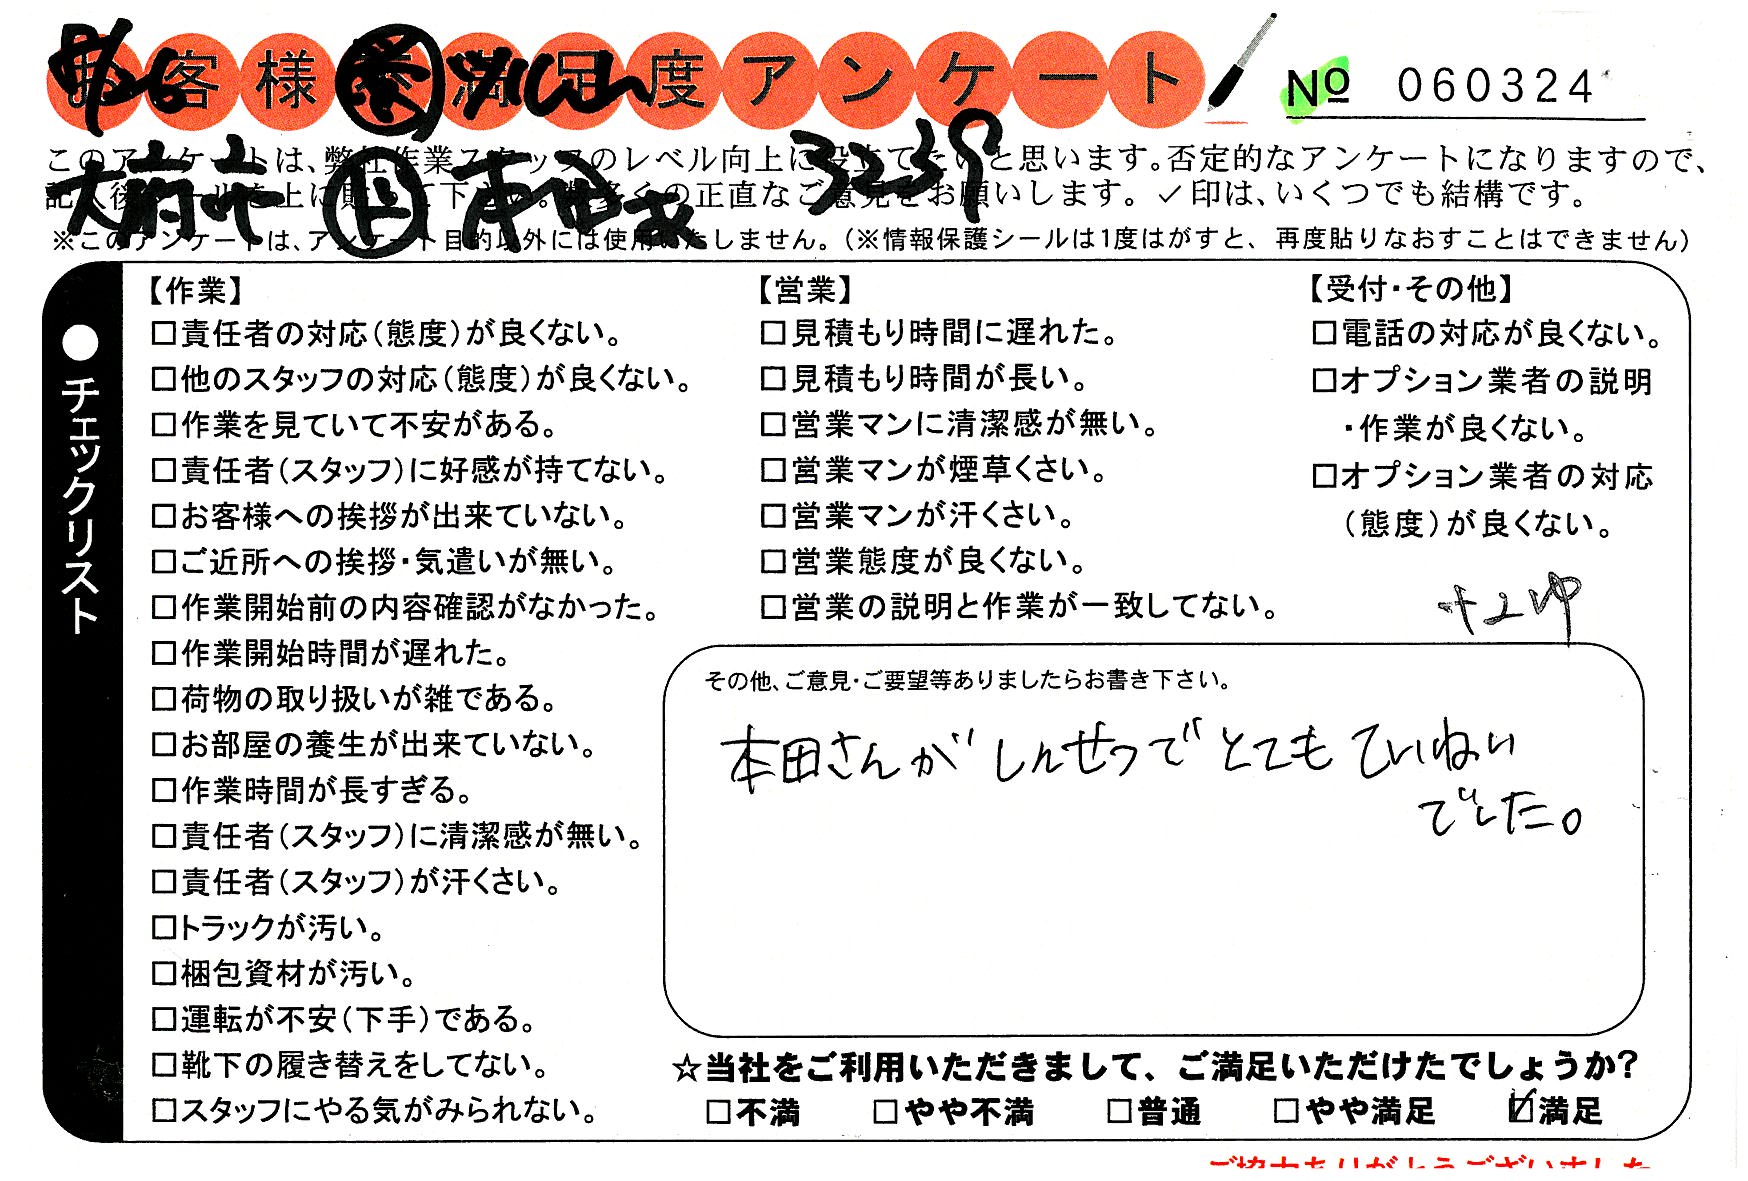 お客様満足度アンケート
№ 060324
このアンケートは、弊社作業スタッフのレベル向上に役立てたいと思います。否定的なアンケートになりますので、
記入後シールを上に貼って下さい。数多くの正直なご意見をお願いします。✓印は、いくつでも結構です。
※このアンケートは、アンケート目的以外には使用いたしません。（※情報保護シールは1度はがすと、再度貼りなおすことはできません）
3239
●チェックリスト
【作業】
□責任者の対応（態度）が良くない。
□他のスタッフの対応（態度）が良くない。
□作業を見ていて不安がある。
□責任者（スタッフ）に好感が持てない。
□お客様への挨拶が出来ていない。
□ご近所への挨拶・気遣いが無い。
□作業開始前の内容確認がなかった。
□作業開始時間が遅れた。
□荷物の取り扱いが雑である。
□お部屋の養生が出来ていない。
□作業時間が長すぎる。
□責任者（スタッフ）に清潔感が無い。
□責任者（スタッフ）が汗くさい。
□トラックが汚い。
□梱包資材が汚い。
□運転が不安（下手）である。
□靴下の履き替えをしてない。
□スタッフにやる気がみられない。
【営業】
□見積もり時間に遅れた。
□見積もり時間が長い。
□営業マンに清潔感が無い。
□営業マンが煙草くさい。
□営業マンが汗くさい。
□営業態度が良くない。
□営業の説明と作業が一致してない。
【受付・その他】
□電話の対応が良くない。
□オプション業者の説明
・作業が良くない。
□オプション業者の対応
（態度）が良くない。
その他、ご意見・ご要望等ありましたらお書き下さい。
本田さんが しんせつで とても ていねい
でした。
☆当社をご利用いただきまして、ご満足いただけたでしょうか?
□不満 □やや不満 □普通 □やや満足 ☑満足
ご協力ありがとうございました